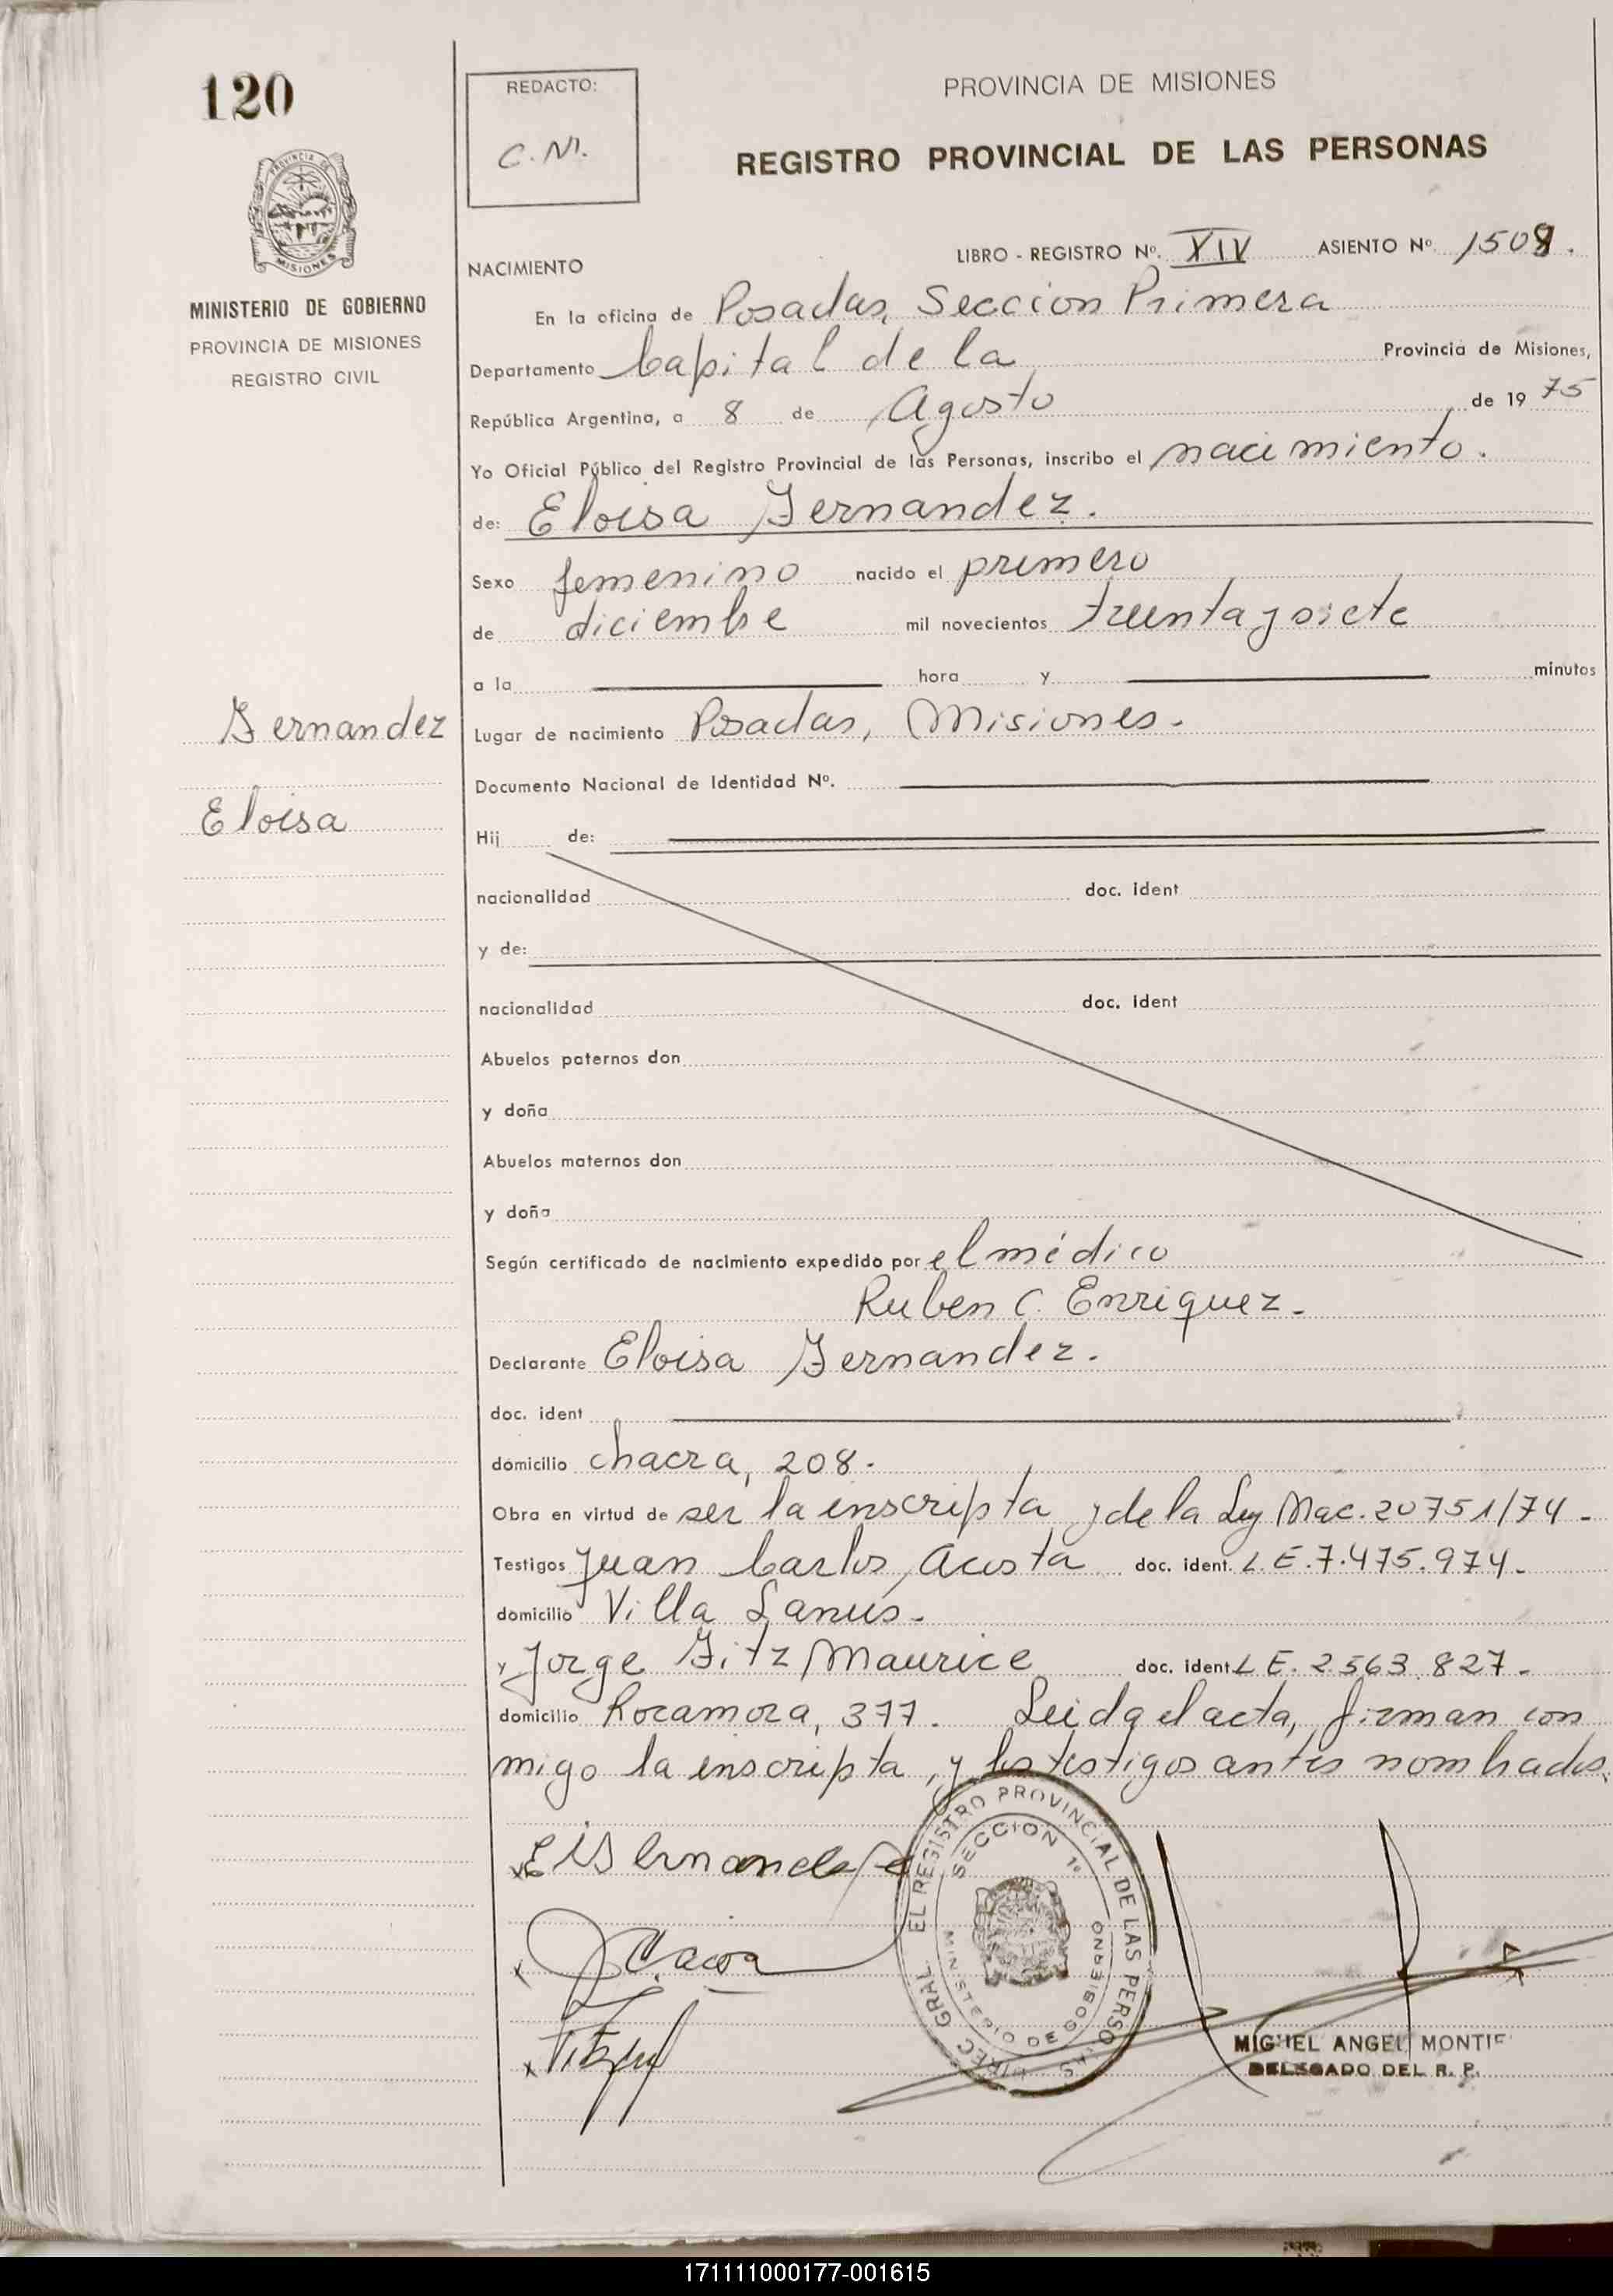 120
REDACTO:
C.M.
PROVINCIA DE MISIONES
REGISTRO PROVINCIAL DE LAS PERSONAS
MISIONES
MINISTERIO DE GOBIERNO
PROVINCIA DE MISIONES
REGISTRO CIVIL
LIBRO - REGISTRO Nº. XIV ASIENTO Nº. 1508.
NACIMIENTO
En la oficina de Posadas, Seccion Primera
Departamento Capital de la Provincia de Misiones,
República Argentina, a 8 de Agosto de 1975
Yo Oficial Público del Registro Provincial de las Personas, inscribo el nacimiento.
de: Eloisa Fernandez.
Sexo femenino nacido el primero
de diciembre mil novecientos treinta y siete
a la hora y minutos
Fernandez
Eloisa
Lugar de nacimiento Posadas, Misiones.
Documento Nacional de Identidad Nº.
Hij de:
nacionalidad doc. ident
y de:
nacionalidad doc. ident
Abuelos paternos don
y doña
Abuelos maternos don
y doña
Según certificado de nacimiento expedido por el médico
Ruben C. Enriquez.
Declarante Eloisa Fernandez.
doc. ident
domicilio chacra, 208.
Obra en virtud de ser la inscripta y de la Ley Nac. 20751/74.
Testigos Juan Carlos Acosta doc. ident. L.E.7.475.974.
domicilio Villa Lanús.
y Jorge Fitz Maurice doc. ident L E. 2563.827.
domicilio Rocamora, 377. Leida el acta, firman con
migo la inscripta, y los testigos antes nombrados.
DIREC. GRAL. EL REGISTRO PROVINCIAL DE LAS PERSONAS
SECCION 1º
MINISTERIO DE GOBIERNO
MIGUEL ANGEL MONTIE
DELEGADO DEL R. P.
171111000177-001615